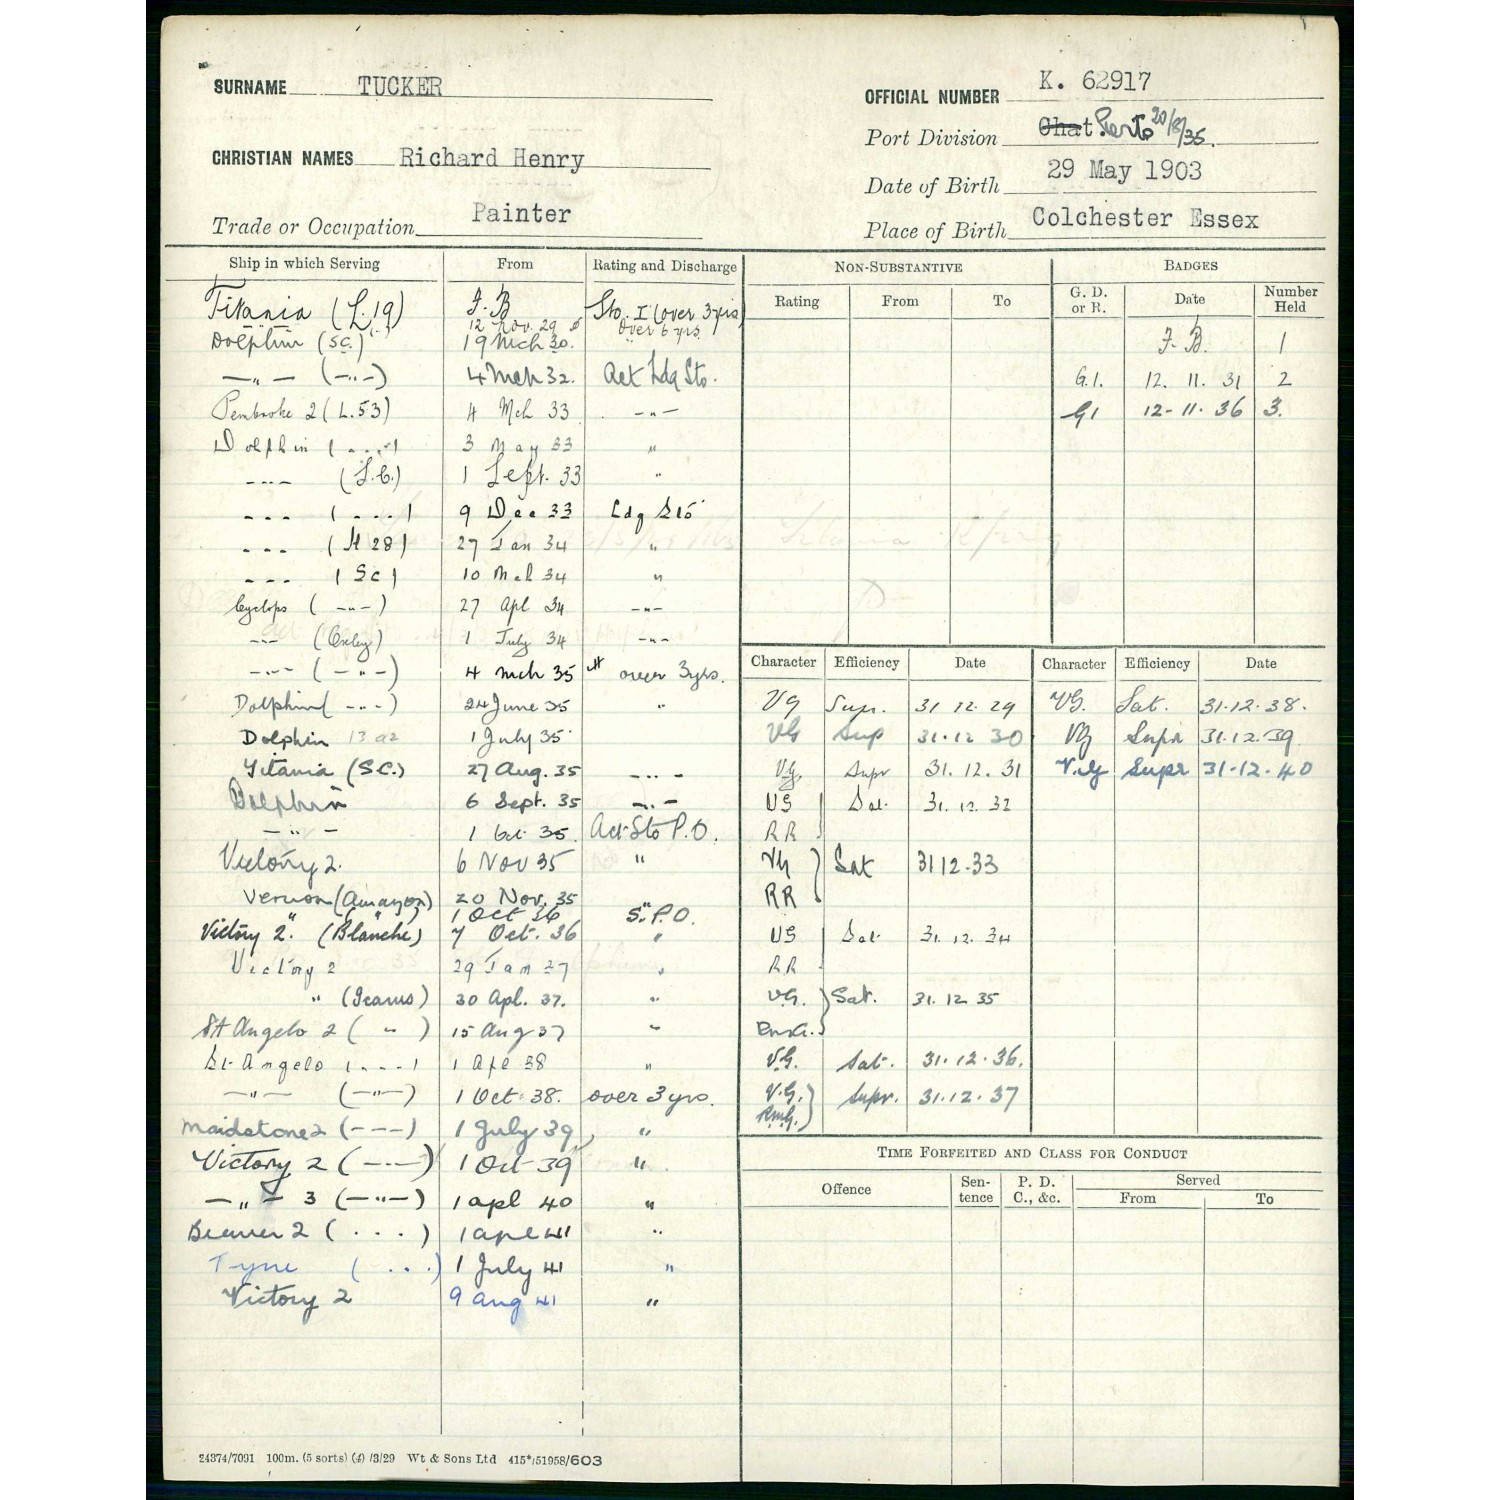 SURNAME TUCKER
OFFICIAL NUMBER K. 62917
Port Division Chat Ports 20/8/35.
CHRISTIAN NAMES Richard Henry
Date of Birth 29 May 1903
Trade or Occupation Painter
Place of Birth Colchester Essex
Ship in which Serving From Rating and Discharge
Titania (L.19) F.B Sto. I (over 3 yrs)
12 Nov. 29 Over 6 yrs.
Dolphin (SC.) 19 Mch 30. "
—"— (—"—) 4 Mch 32. Act Ldg Sto.
Pembroke 2 (L.53) 4 Mch 33 -"-
Dolphin (...) 3 May 33 "
-"- (S.C.) 1 Sept. 33 "
--- (...) 9 Dec 33 Ldg Sto
--- (H 28) 27 Jan 34 "
--- (SC) 10 Mch 34 "
Cyclops (-"-) 27 Apl 34 -"-
-"- (Oxley) 1 July 34 -"-
-"- (-"-) 4 Mch 35 " over 3 yrs.
Dolphin (-"-) 24 June 35 "
Dolphin 1 July 35
Titania (S.C.) 27 Aug. 35 -"-
Dolphin 6 Sept. 35 -"-
—"— 1 Oct 35. Act Sto P.O.
Victory 2. 6 Nov 35 "
Vernon (Amazon) 20 Nov. 35 "
" ( " ) 1 Oct 36 S.P.O.
Victory 2. (Blanche) 7 Oct. 36 "
Victory 2 29 Jan 37 "
" (Icarus) 30 Apl. 37. "
St Angelo 2 ( " ) 15 Aug 37 "
St. Angelo (...) 1 Apl 38 "
—"— (—"—) 1 Oct 38. over 3 yrs.
Maidstone 2 (---) 1 July 39 "
Victory 2 (-"-) 1 Oct 39 "
—"— 3 (—"—) 1 Apl 40 "
Beaver 2 (...) 1 Apl 41 "
Tyne (...) 1 July 41 "
Victory 2 9 Aug 41 "
24374/7091 100m. (5 sorts) (4) /3/29 Wt & Sons Ltd 415*/51958/603
NON-SUBSTANTIVE
Rating From To
BADGES
G. D. or R. Date Number Held
F. B. 1
G.1. 12. 11. 31 2
G1 12-11-36 3.
Character Efficiency Date Character Efficiency Date
VG Supr. 31 12 29 VG. Sat. 31.12.38.
VG Sup 31.12 30 VG Supr 31.12.39
V.G. Supr 31. 12. 31 V.G Supr 31-12-40
VG Sat. 31. 12. 32
RR
VG Sat 31 12.33
RR
VG Sat. 31. 12. 34
RR
V.G. Sat. 31. 12 35
RmG.
V.G. Sat. 31.12.36.
V.G. Supr. 31.12.37
RmG.
TIME FORFEITED AND CLASS FOR CONDUCT
Offence Sentence P. D. C., &c. Served
From To